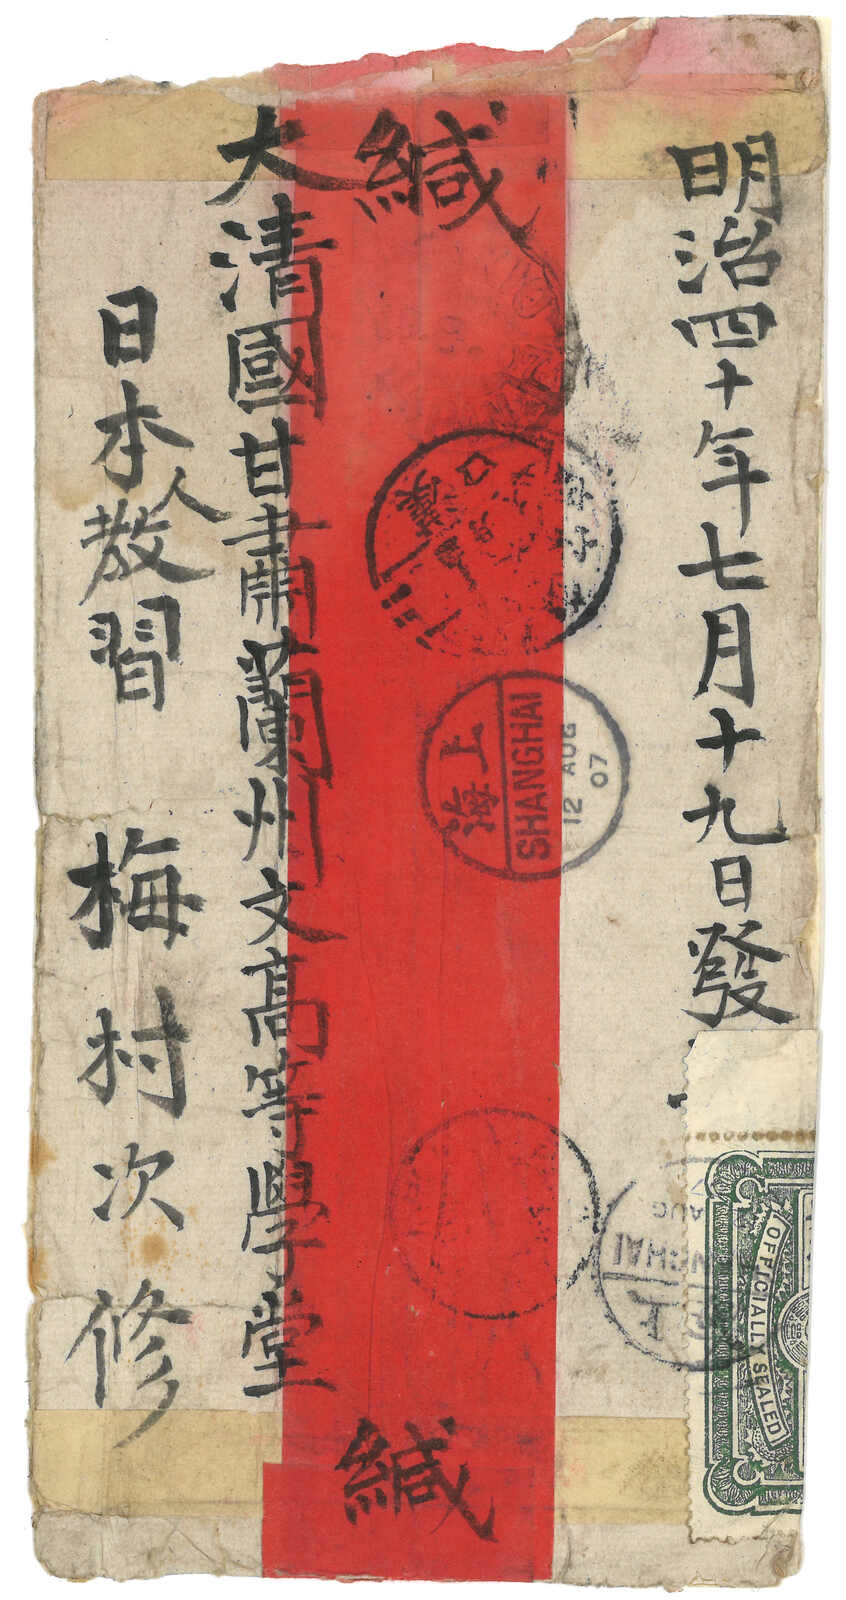 明治四十年七月十九日發
緘
緘
大清國甘肅蘭州文高等學堂
日本人教習 梅村次修
上海
SHANGHAI
12 AUG
07
AUG
OFFICIALLY SEALED